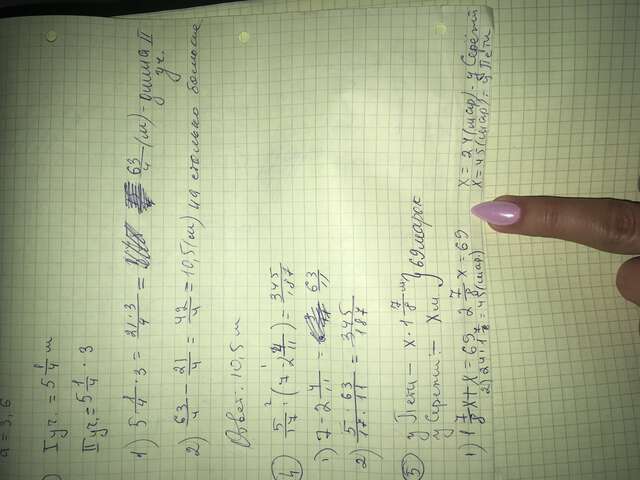 a = 3,6
I уч. = 5 1/4 м
II уч. = 5 1/4 · 3
1) 5 1/4 · 3 = 21·3/4 = 63/4 (м) - длина II
уч.
2) 63/4 - 21/4 = 42/4 = 10,5 (м) на столько больше
Ответ: 10,5 м
4 5/17 · (7 - 2 4/11) = 345/187
1) 7 - 2 4/11 = 63/11
2) 5·63/17·11 = 345/187
5 у Пети - x · 1 7/8 м
у Серёжи - x м } 69 марок
1) 1 7/8 x + x = 69 2 7/8 x = 69 x = 24 (мар) - у Серёжи
2) 24 · 1 7/8 = 45 (мар.) x = 45 (мар) = у Пети